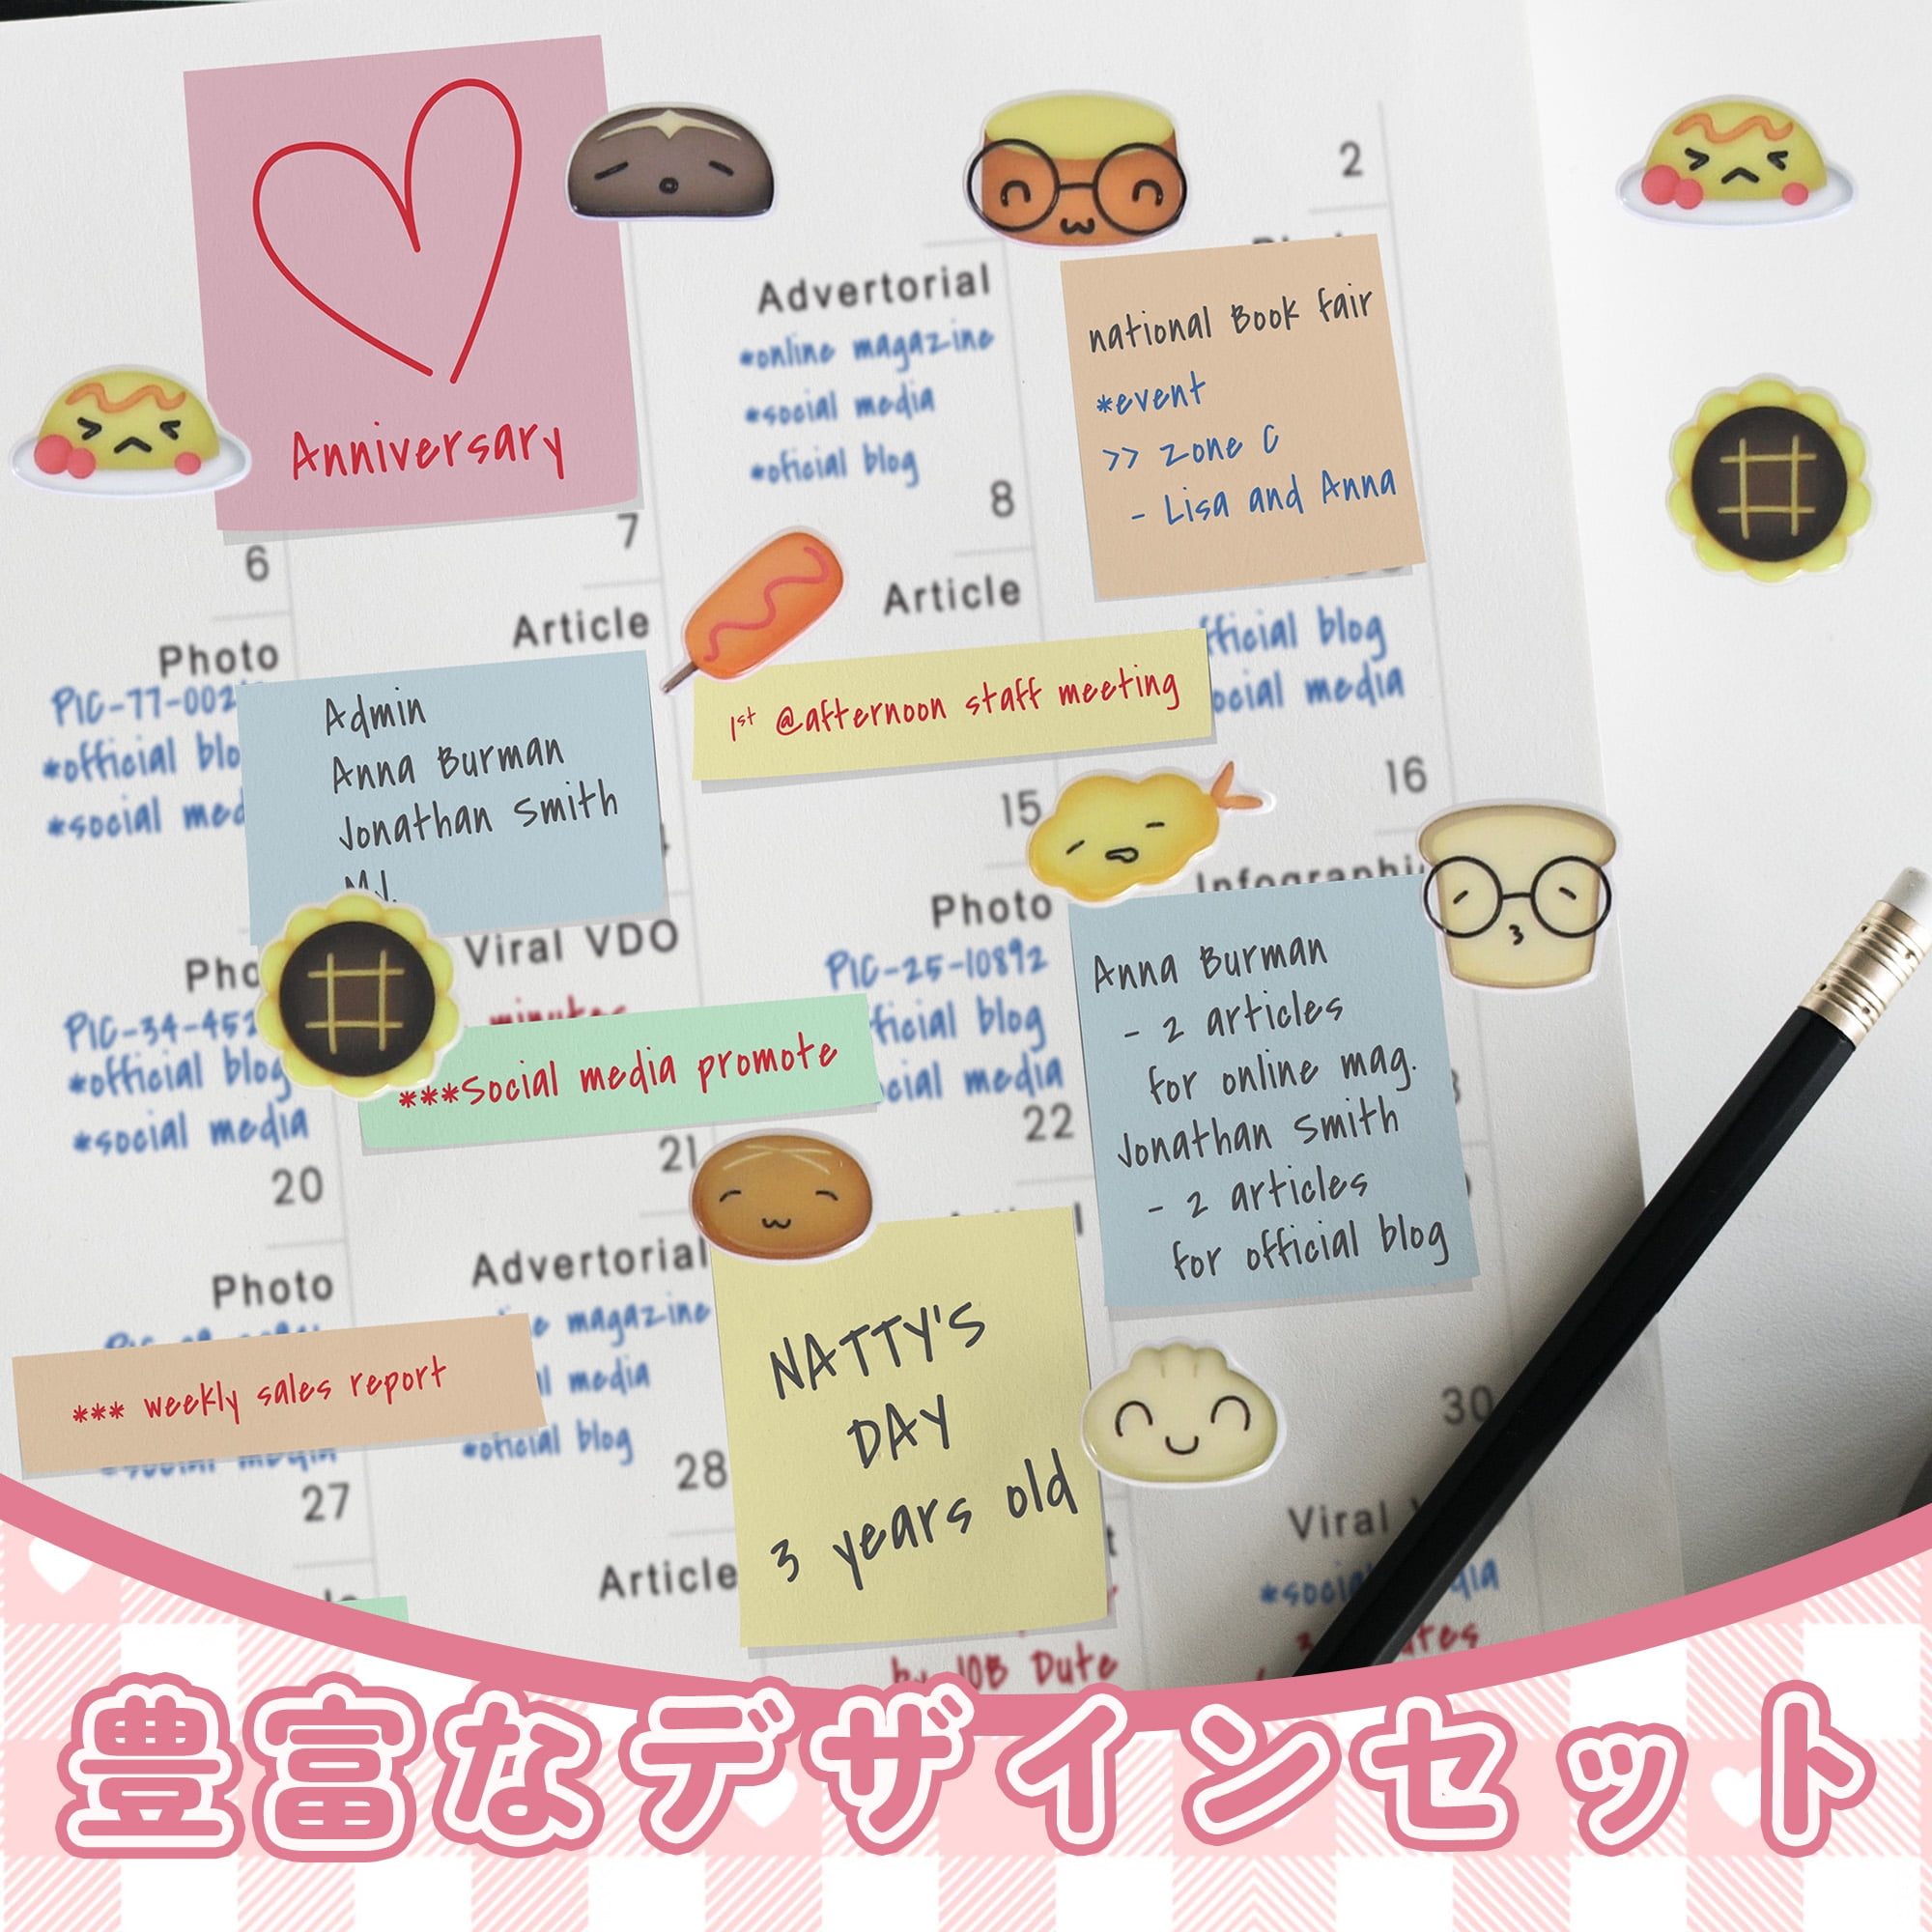 Anniversary
2
Advertorial
*online magazine
*social media
*oficial blog
national Book fair
*event
>> zone C
- Lisa and Anna
6
7
8
Photo
PIC-77-002
*official blo
*social med
Article
Article
fficial blog
ocial media
Admin
Anna Burman
Jonathan Smith
M.J.
1st @afternoon staff meeting
15
16
Pho
PIC-34-452
*official blog
*social media
Viral VDO
minutes
***Social media promote
Photo
PIC-25-10892
ficial blog
cial media
Infographi
Anna Burman
- 2 articles
for online mag.
Jonathan Smith
- 2 articles
for official blog
20
21
22
Photo
*** weekly sales report
*social media
Advertorial
ne magazine
l media
*oficial blog
NATTY'S
DAY
3 years old
27
28
30
Article
Viral
by JOB Dute
豊富なデザインセット